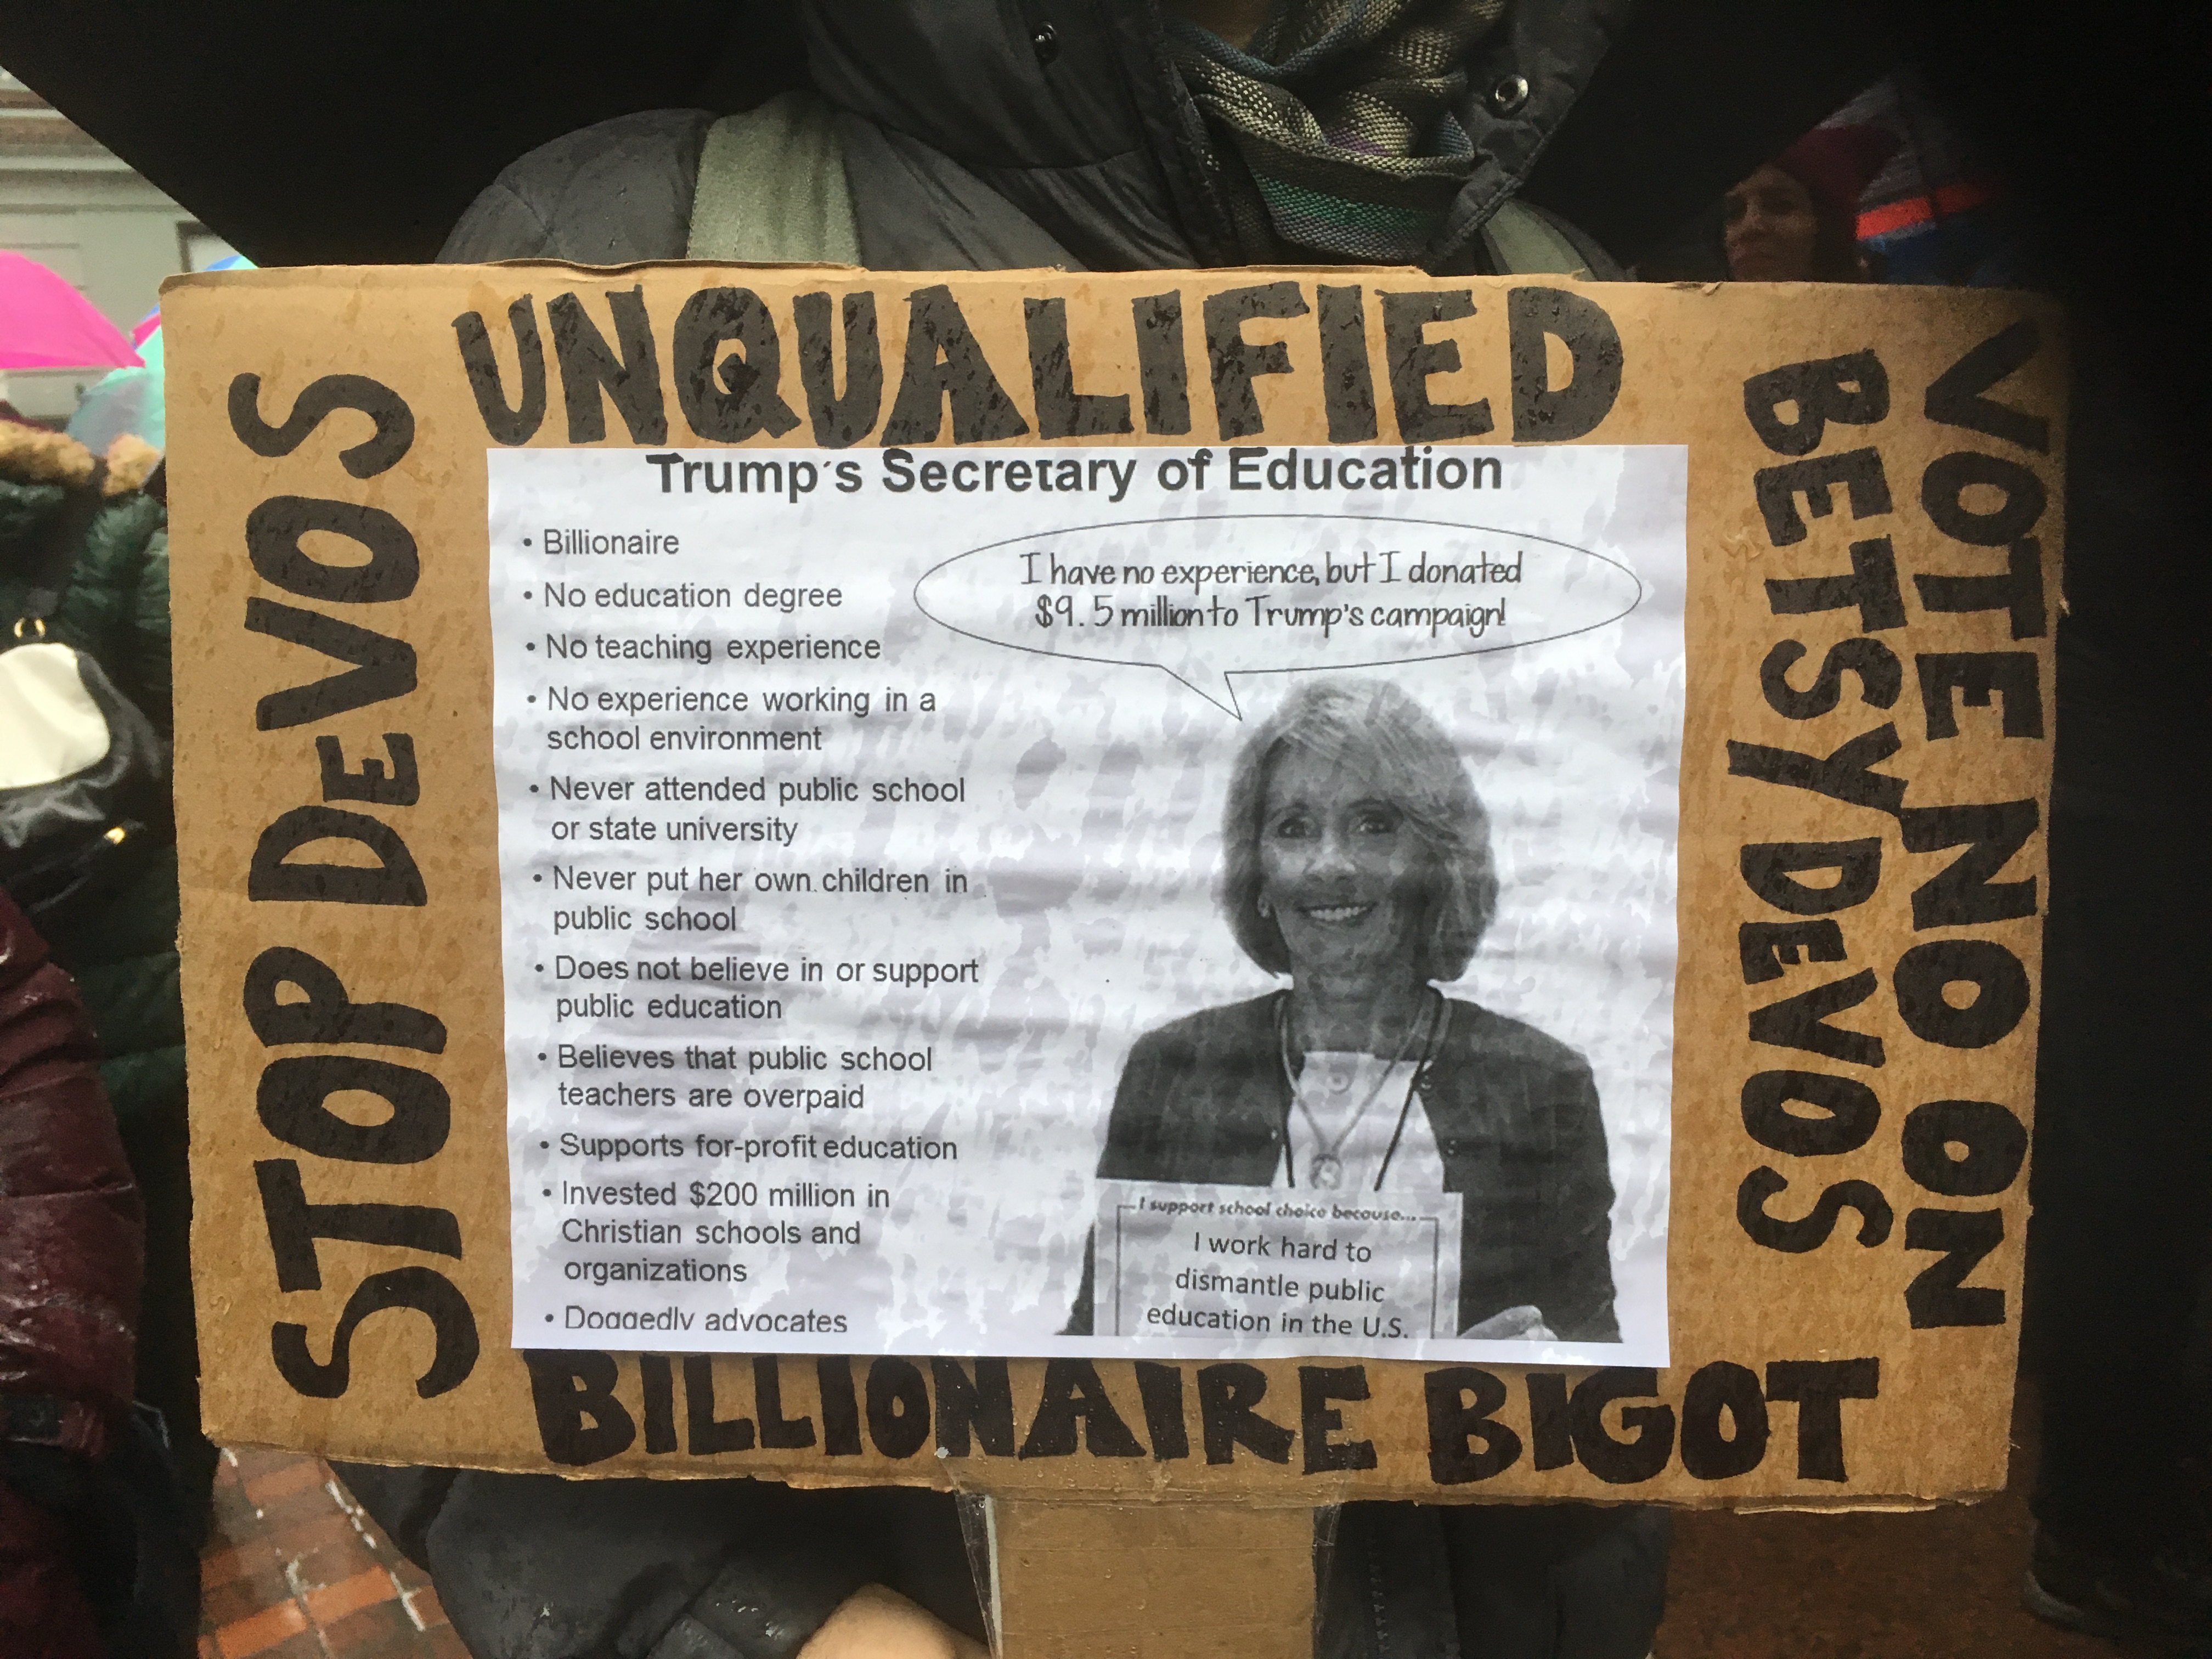 UNQUALIFIED
STOP DEVOS
Trump's Secretary of Education
• Billionaire
• No education degree
• No teaching experience
• No experience working in a
school environment
• Never attended public school
or state university
• Never put her own children in
public school
• Does not believe in or support
public education
• Believes that public school
teachers are overpaid
• Supports for-profit education
• Invested $200 million in
Christian schools and
organizations
• Doggedly advocates
I have no experience, but I donated
$9.5 million to Trump's campaign!
I support school choice because...
I work hard to
dismantle public
education in the U.S.
VOTE NO ON
BETSY DEVOS
BILLIONAIRE BIGOT